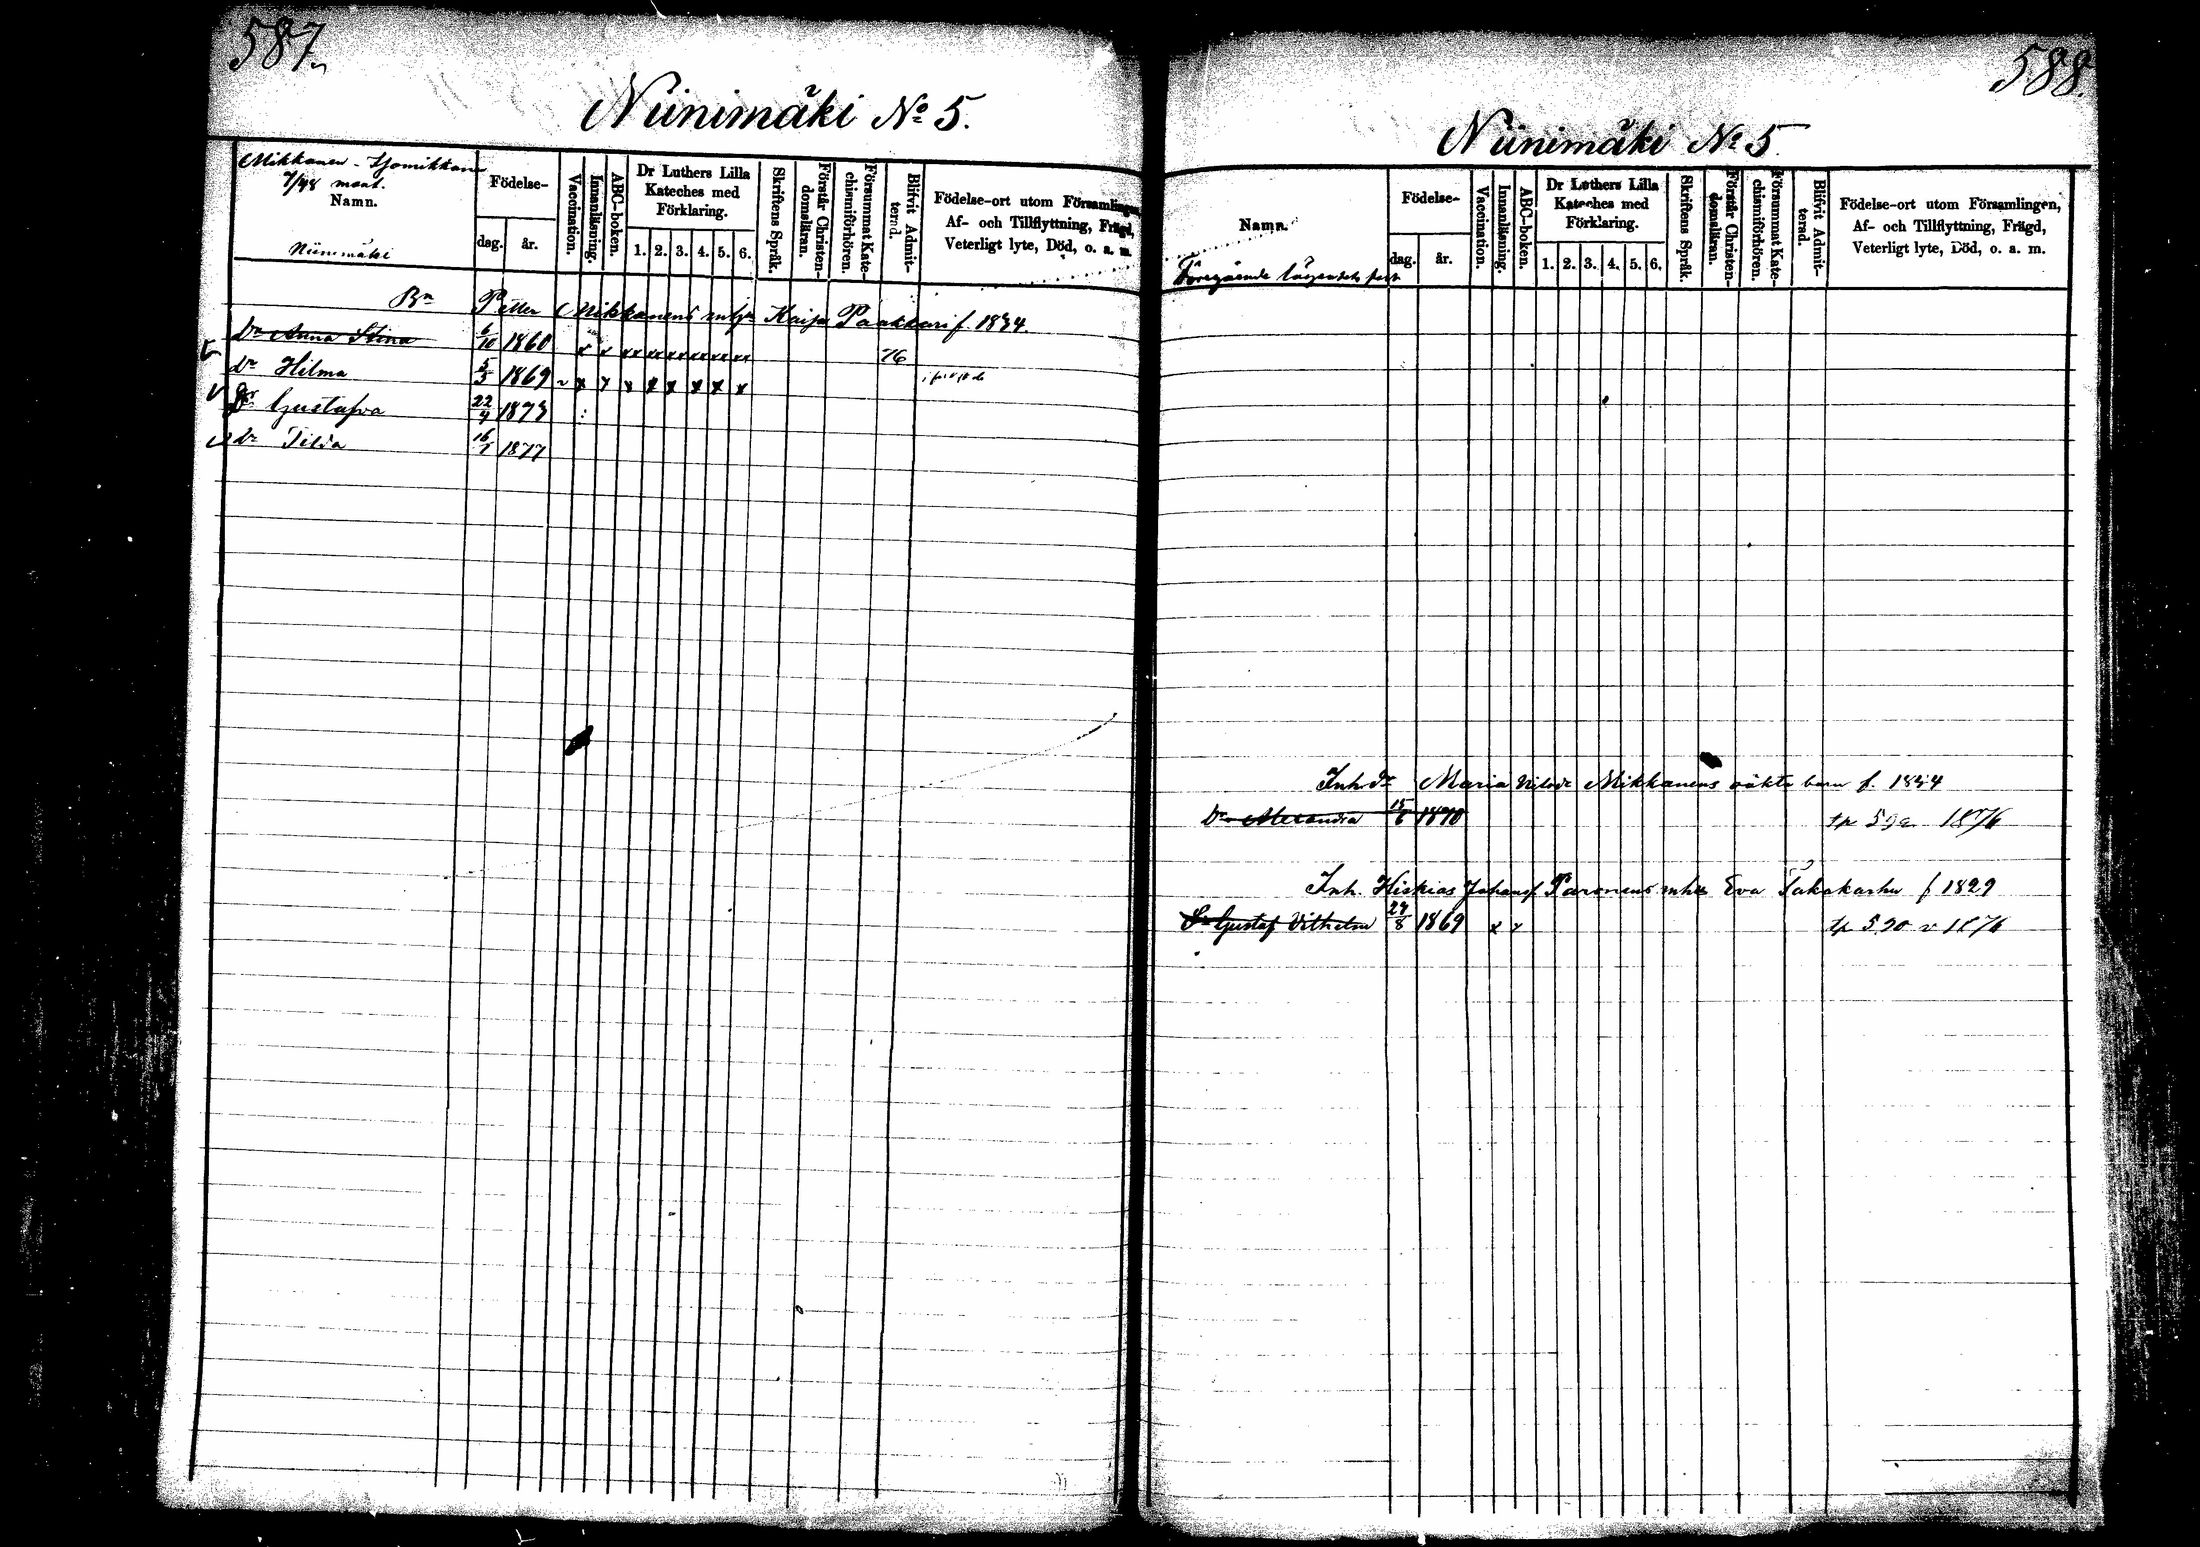 587.
Niinimäki No 5.
Mikkanen - Isomikkane
7/48 mant.
Namn.
Niinimäki
Födelse-
dag. år.
Vaccination.
Innanläsning.
ABC-boken.
Dr Luthers Lilla
Kateches med
Förklaring.
1. 2. 3. 4. 5. 6.
Skriftens Språk.
Förstår Christen-
domsläran.
Försummat Kate-
chismiförhören.
Blifvit Admit-
terad.
Födelse-ort utom Församlingen,
Af- och Tillflyttning, Frägd,
Veterligt lyte, Död, o. a. m.
Bn Petter Mikkanens m hu Kaisa Paakkari f. 1834.
Dr Anna Stina 6/10 1860 x x xx xx xx xx xx xx 76
Dr Hilma 5/3 1869 x x x x x x x x
Dr Gustafva 22/4 1873
Dr Tilda 16/7 1877
588.
Niinimäki No 5
Namn.
Föregående lägenhets
Födelse-
dag. år.
Vaccination.
Innanläsning.
ABC-boken.
Dr Luthers Lilla
Kateches med
Förklaring.
1. 2. 3. 4. 5. 6.
Skriftens Språk.
Förstår Christen-
domsläran.
Försummat Kate-
chismiförhören.
Blifvit Admit-
terad.
Födelse-ort utom Församlingen,
Af- och Tillflyttning, Frägd,
Veterligt lyte, Död, o. a. m.
Inh dr Maria Mikkanens oäkta barn f. 1834
Dr Alexandra 15/6 1870 tp 590 1876
Inh. Hiskias Johansf Paronens m hu Eva Takakarhu f 1829
Sn Gustaf Vilhelm 24/8 1869 x x tp 590 v 1876